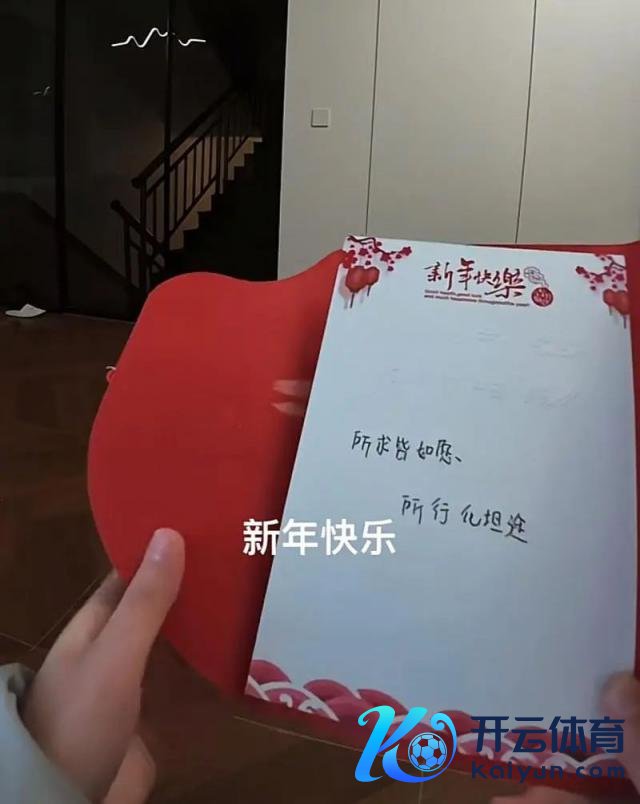 新年快樂
所求皆如愿、
所行化坦途
新年快乐
开云体育
Kaiyun.com